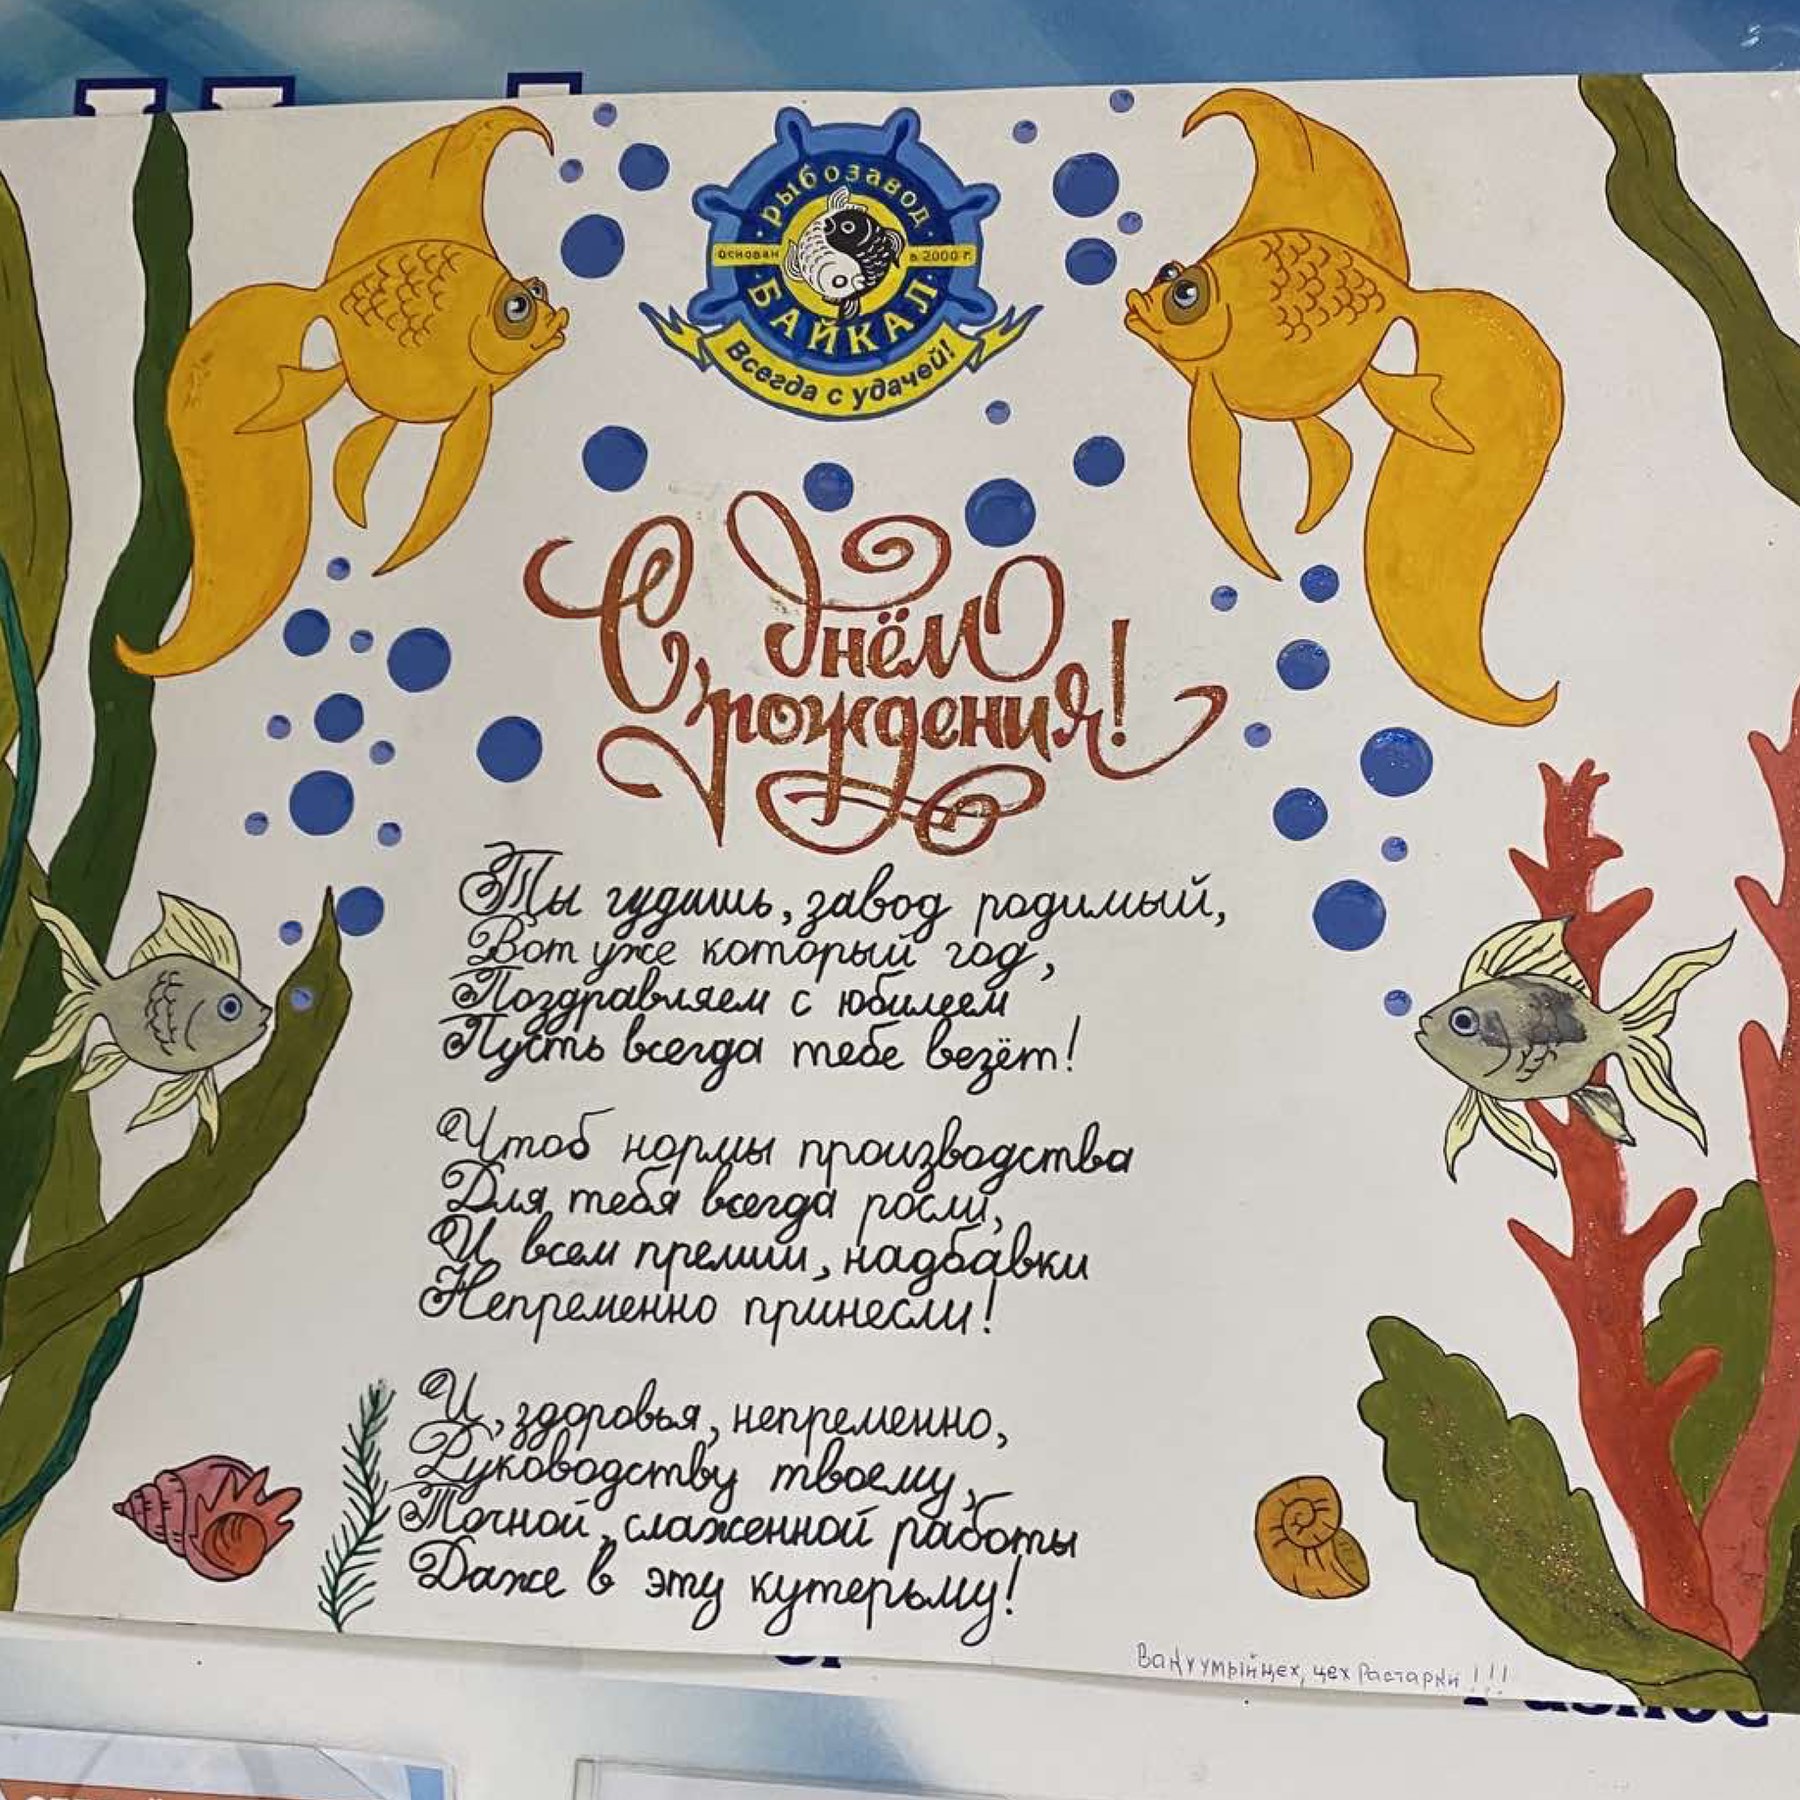 рыбозавод
основан в 2000 г.
БАЙКАЛ
Всегда с удачей!
С днём
рождения!
Ты гудишь, завод родимый,
Вот уже который год,
Поздравляем с юбилеем
Пусть всегда тебе везёт!
Чтоб нормы производства
Для тебя всегда росли,
И всем премии, надбавки
Непременно принесли!
И, здоровья, непременно,
Руководству твоему,
Точной, слаженной работы
Даже в эту кутерьму!
Вакуумрыйцех, цех Растарки!!!